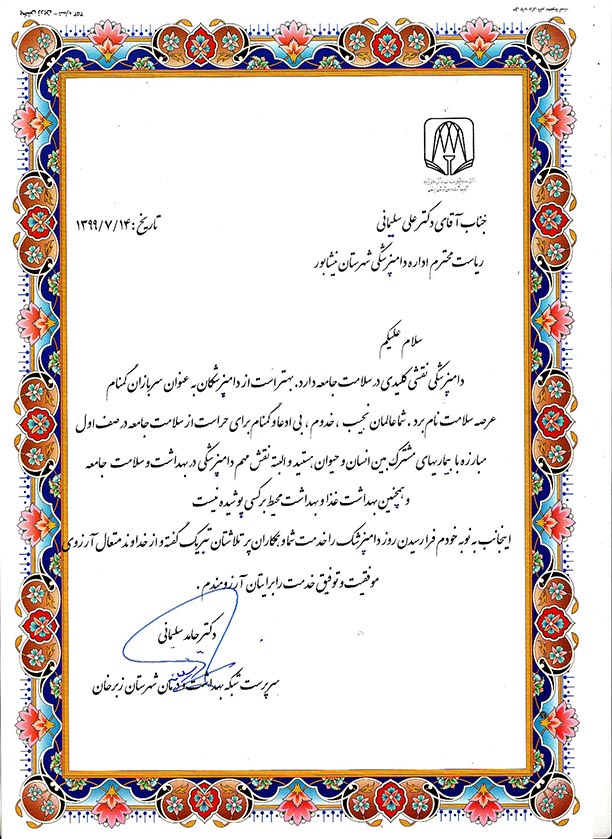 جناب آقای دکتر علی سلیمانی
تاریخ: ۱۳۹۹/۷/۱۴
ریاست محترم اداره دامپزشکی شهرستان نیشابور
سلام علیکم
دامپزشکی نقشی کلیدی در سلامت جامعه دارد. بهتر است از دامپزشکان به عنوان سربازان گمنام
عرصه سلامت نام برد. شما عالمان نجیب ، خدوم ، بی ادعا و گمنام برای حراست از سلامت جامعه در صف اول
مبارزه با بیماریهای مشترک بین انسان و حیوان هستید و البته نقش مهم دامپزشکی در بهداشت و سلامت جامعه
و همچنین بهداشت غذا و بهداشت محیط بر کسی پوشیده نیست
اینجانب به نوبه خودم فرا رسیدن روز دامپزشک را خدمت شما و همکاران پر تلاشتان تبریک گفته و از خداوند متعال آرزوی
موفقیت و توفیق خدمت را برایتان آرزومندم .
دکتر حامد سلیمانی
سرپرست شبکه بهداشت و درمان شهرستان زبرخان